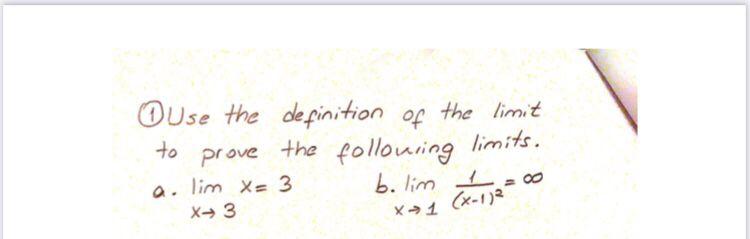 ① Use the definition of the limit
to prove the following limits.
a. lim x = 3 b. lim 1/(x-1)² = ∞
x→3 x→1